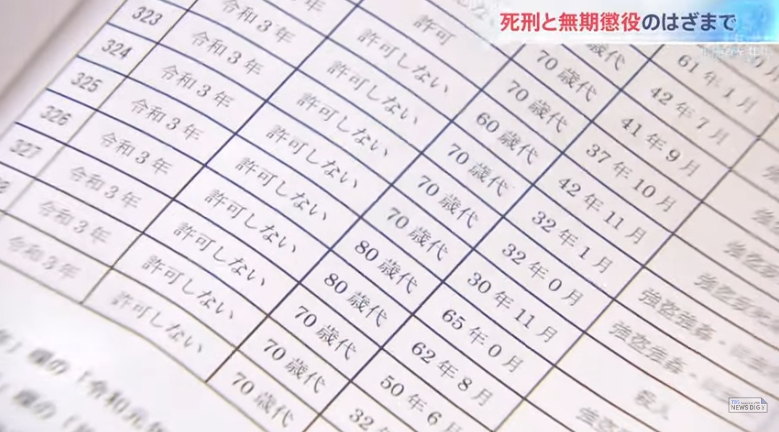 死刑と無期懲役のはざまで
61年1月
歳代 42年7月
70歳代 41年9月
許可 70歳代 37年10月
許可しない 60歳代 42年11月
令和3年 許可しない 70歳代 32年1月 強盗強姦・
323 令和3年 許可しない 70歳代 32年0月 強盗強姦・
324 令和3年 許可しない 70歳代 30年11月 殺人
325 令和3年 許可しない 80歳代 65年0月
326 令和3年 許可しない 80歳代 62年8月
327 令和3年 許可しない 70歳代 50年6
令和3年 許可しない 70歳代 32年
令和3年 許可しない 70歳代
欄の「令和元年
TBS NEWS DIG